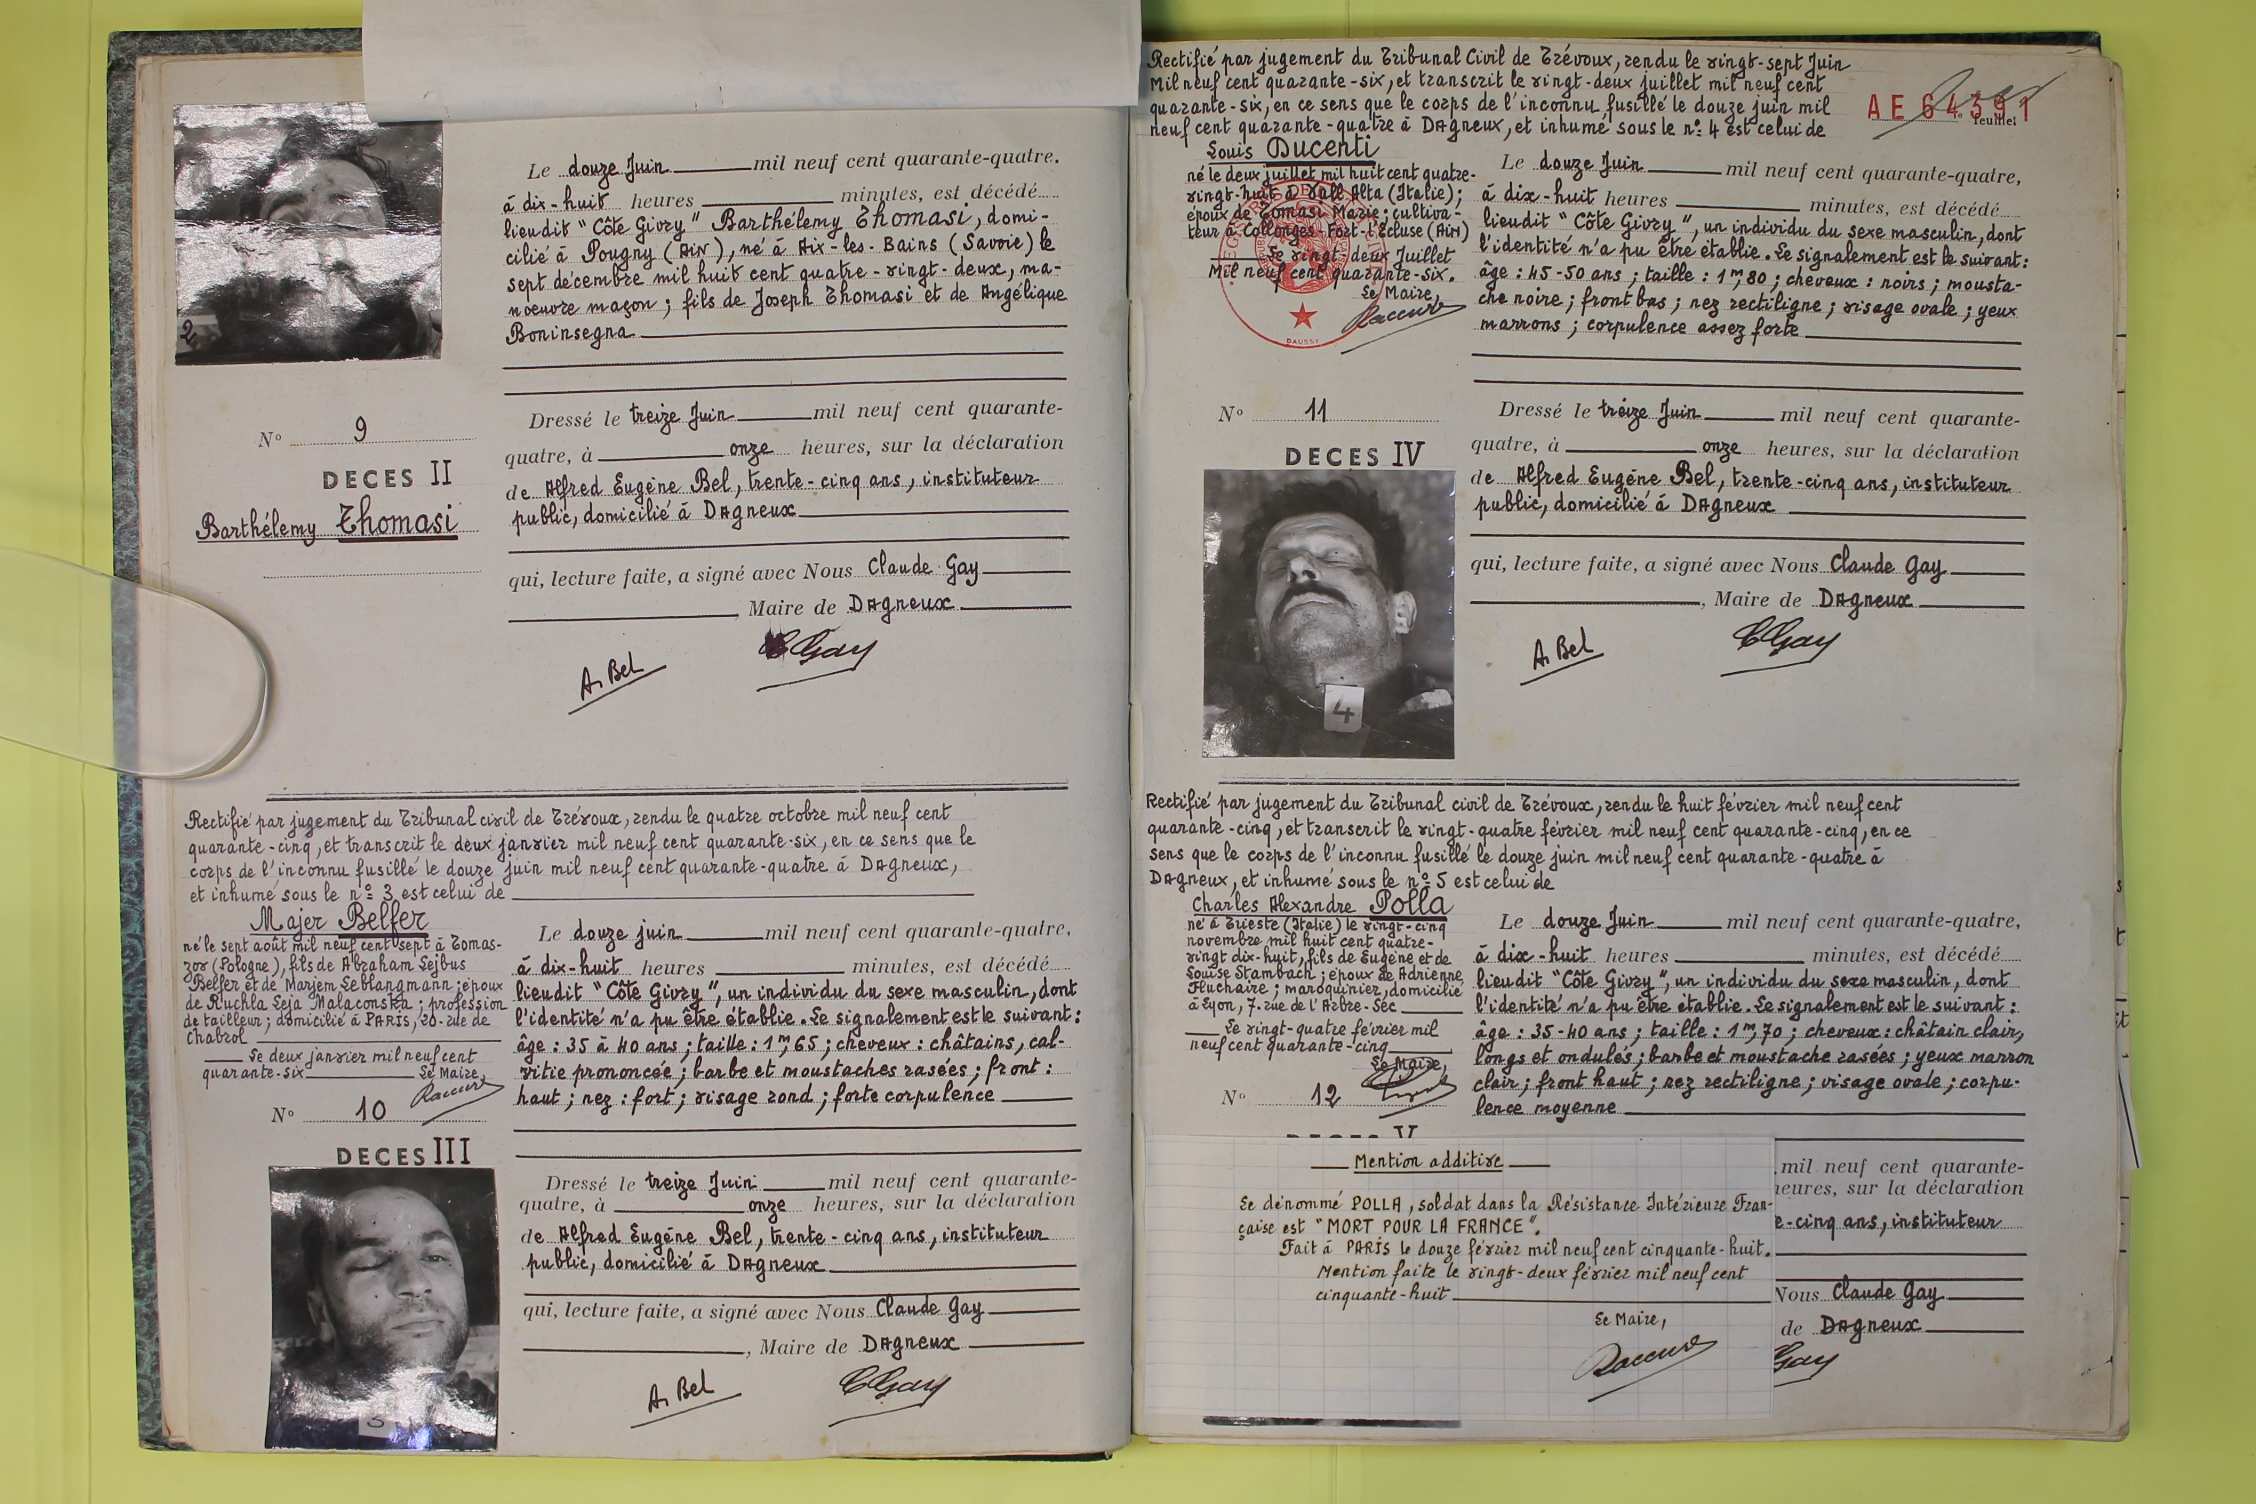 Le douze Juin mil neuf cent quarante-quatre.
à dix-huit heures minutes, est décédé
lieudit "Côte Givry" Barthélemy Thomasi, domi-
cilié à Pougny (Ain), né à Aix-les-Bains (Savoie) le
sept décembre mil huit cent quatre-vingt-deux, ma-
noeuvre maçon ; fils de Joseph Thomasi et de Angélique
Boninsegna
2
Nº 9
DECES II
Barthélemy Thomasi
Dressé le treize Juin mil neuf cent quarante-
quatre, à onze heures, sur la déclaration
de Alfred Eugène Bel, trente-cinq ans, instituteur
public, domicilié à Dagneux
qui, lecture faite, a signé avec Nous Claude Gay
Maire de Dagneux
A. Bel
CGay
Rectifié par jugement du Tribunal civil de Trévoux, rendu le quatre octobre mil neuf cent
quarante-cinq, et transcrit le deux janvier mil neuf cent quarante-six, en ce sens que le
corps de l'inconnu fusillé le douze juin mil neuf cent quarante-quatre à Dagneux,
et inhumé sous le nº 3 est celui de
Majer Belfer
né le sept août mil neuf cent sept à Tomas-
zov (Pologne), fils de Abraham Lejbus
Belfer et de Marjem Leblangmann ; époux
de Ruchla Leja Malaconska ; profession
de tailleur ; domicilié à PARIS, 20-rue de
Chabrol
Le deux janvier mil neuf cent
quarante-six Le Maire,
Raccurt
Nº 10
DECES III
3
Le douze juin mil neuf cent quarante-quatre,
à dix-huit heures minutes, est décédé
lieudit "Côte Givry", un individu du sexe masculin, dont
l'identité n'a pu être établie. Le signalement est le suivant :
âge : 35 à 40 ans ; taille : 1m,65 ; cheveux : châtains, cal-
vitie prononcée ; barbe et moustaches rasées ; front :
haut ; nez : fort ; visage rond ; forte corpulence
Dressé le treize Juin mil neuf cent quarante-
quatre, à onze heures, sur la déclaration
de Alfred Eugène Bel, trente-cinq ans, instituteur
public, domicilié à Dagneux
qui, lecture faite, a signé avec Nous Claude Gay
, Maire de Dagneux
A. Bel
CGay
Rectifié par jugement du Tribunal Civil de Trévoux, rendu le vingt-sept Juin
Mil neuf cent quarante-six, et transcrit le vingt-deux juillet mil neuf cent
quarante-six, en ce sens que le corps de l'inconnu fusillé le douze juin mil
neuf cent quarante-quatre à Dagneux, et inhumé sous le nº 4 est celui de
AE 64391
feuillet
Louis Ducenti
né le deux juillet mil huit cent quatre-
vingt-huit à Vall Alta (Italie) ;
époux de Tomasi Marie ; cultiva-
teur à Collonges-Fort-l'Écluse (Ain)
Le vingt-deux Juillet
Mil neuf cent quarante-six.
Le Maire,
Raccurt
DAUSSY
Le douze Juin mil neuf cent quarante-quatre,
à dix-huit heures minutes, est décédé
lieudit "Côte Givry", un individu du sexe masculin, dont
l'identité n'a pu être établie. Le signalement est le suivant :
âge : 45-50 ans ; taille : 1m,80 ; cheveux : noirs ; mousta-
che noire ; front bas ; nez rectiligne ; visage ovale ; yeux
marrons ; corpulence assez forte
Nº 11
DECES IV
4
Dressé le treize Juin mil neuf cent quarante-
quatre, à onze heures, sur la déclaration
de Alfred Eugène Bel, trente-cinq ans, instituteur
public, domicilié à Dagneux
qui, lecture faite, a signé avec Nous Claude Gay
, Maire de Dagneux
A. Bel
CGay
Rectifié par jugement du Tribunal civil de Trévoux, rendu le huit février mil neuf cent
quarante-cinq, et transcrit le vingt-quatre février mil neuf cent quarante-cinq, en ce
sens que le corps de l'inconnu fusillé le douze juin mil neuf cent quarante-quatre à
Dagneux, et inhumé sous le nº 5 est celui de
Charles Alexandre Polla
né à Trieste (Italie) le vingt-cinq
novembre mil huit cent quatre-
vingt dix-huit, fils de Eugène et de
Louise Stambach ; époux de Adrienne
Fluchaire ; maroquinier, domicilié
à Lyon, 7-rue de l'Arbre-Sec
Le vingt-quatre février mil
neuf cent quarante-cinq
Le Maire,
Nº 12
DECES V
Le douze Juin mil neuf cent quarante-quatre,
à dix-huit heures minutes, est décédé
lieudit "Côte Givry", un individu du sexe masculin, dont
l'identité n'a pu être établie. Le signalement est le suivant :
âge : 35-40 ans ; taille : 1m,70 ; cheveux : châtain clair,
longs et ondulés ; barbe et moustache rasées ; yeux marron
clair ; front haut ; nez rectiligne ; visage ovale ; corpu-
lence moyenne
Mention additive
Le dénommé POLLA, soldat dans la Résistance Intérieure Fran-
çaise est "MORT POUR LA FRANCE".
Fait à PARIS le douze février mil neuf cent cinquante-huit.
Mention faite le vingt-deux février mil neuf cent
cinquante-huit
Le Maire,
Raccurt
mil neuf cent quarante-
heures, sur la déclaration
e-cinq ans, instituteur
Nous Claude Gay
de Dagneux
Gay